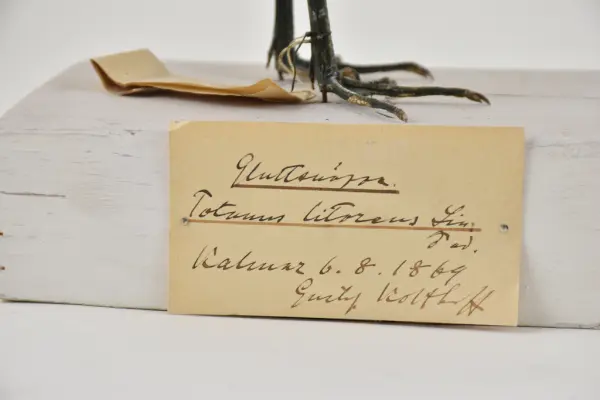 Gluttsnäppa.
Totanus litoreus Lin.
Kalmar 6. 8. 1869
Kolthoff